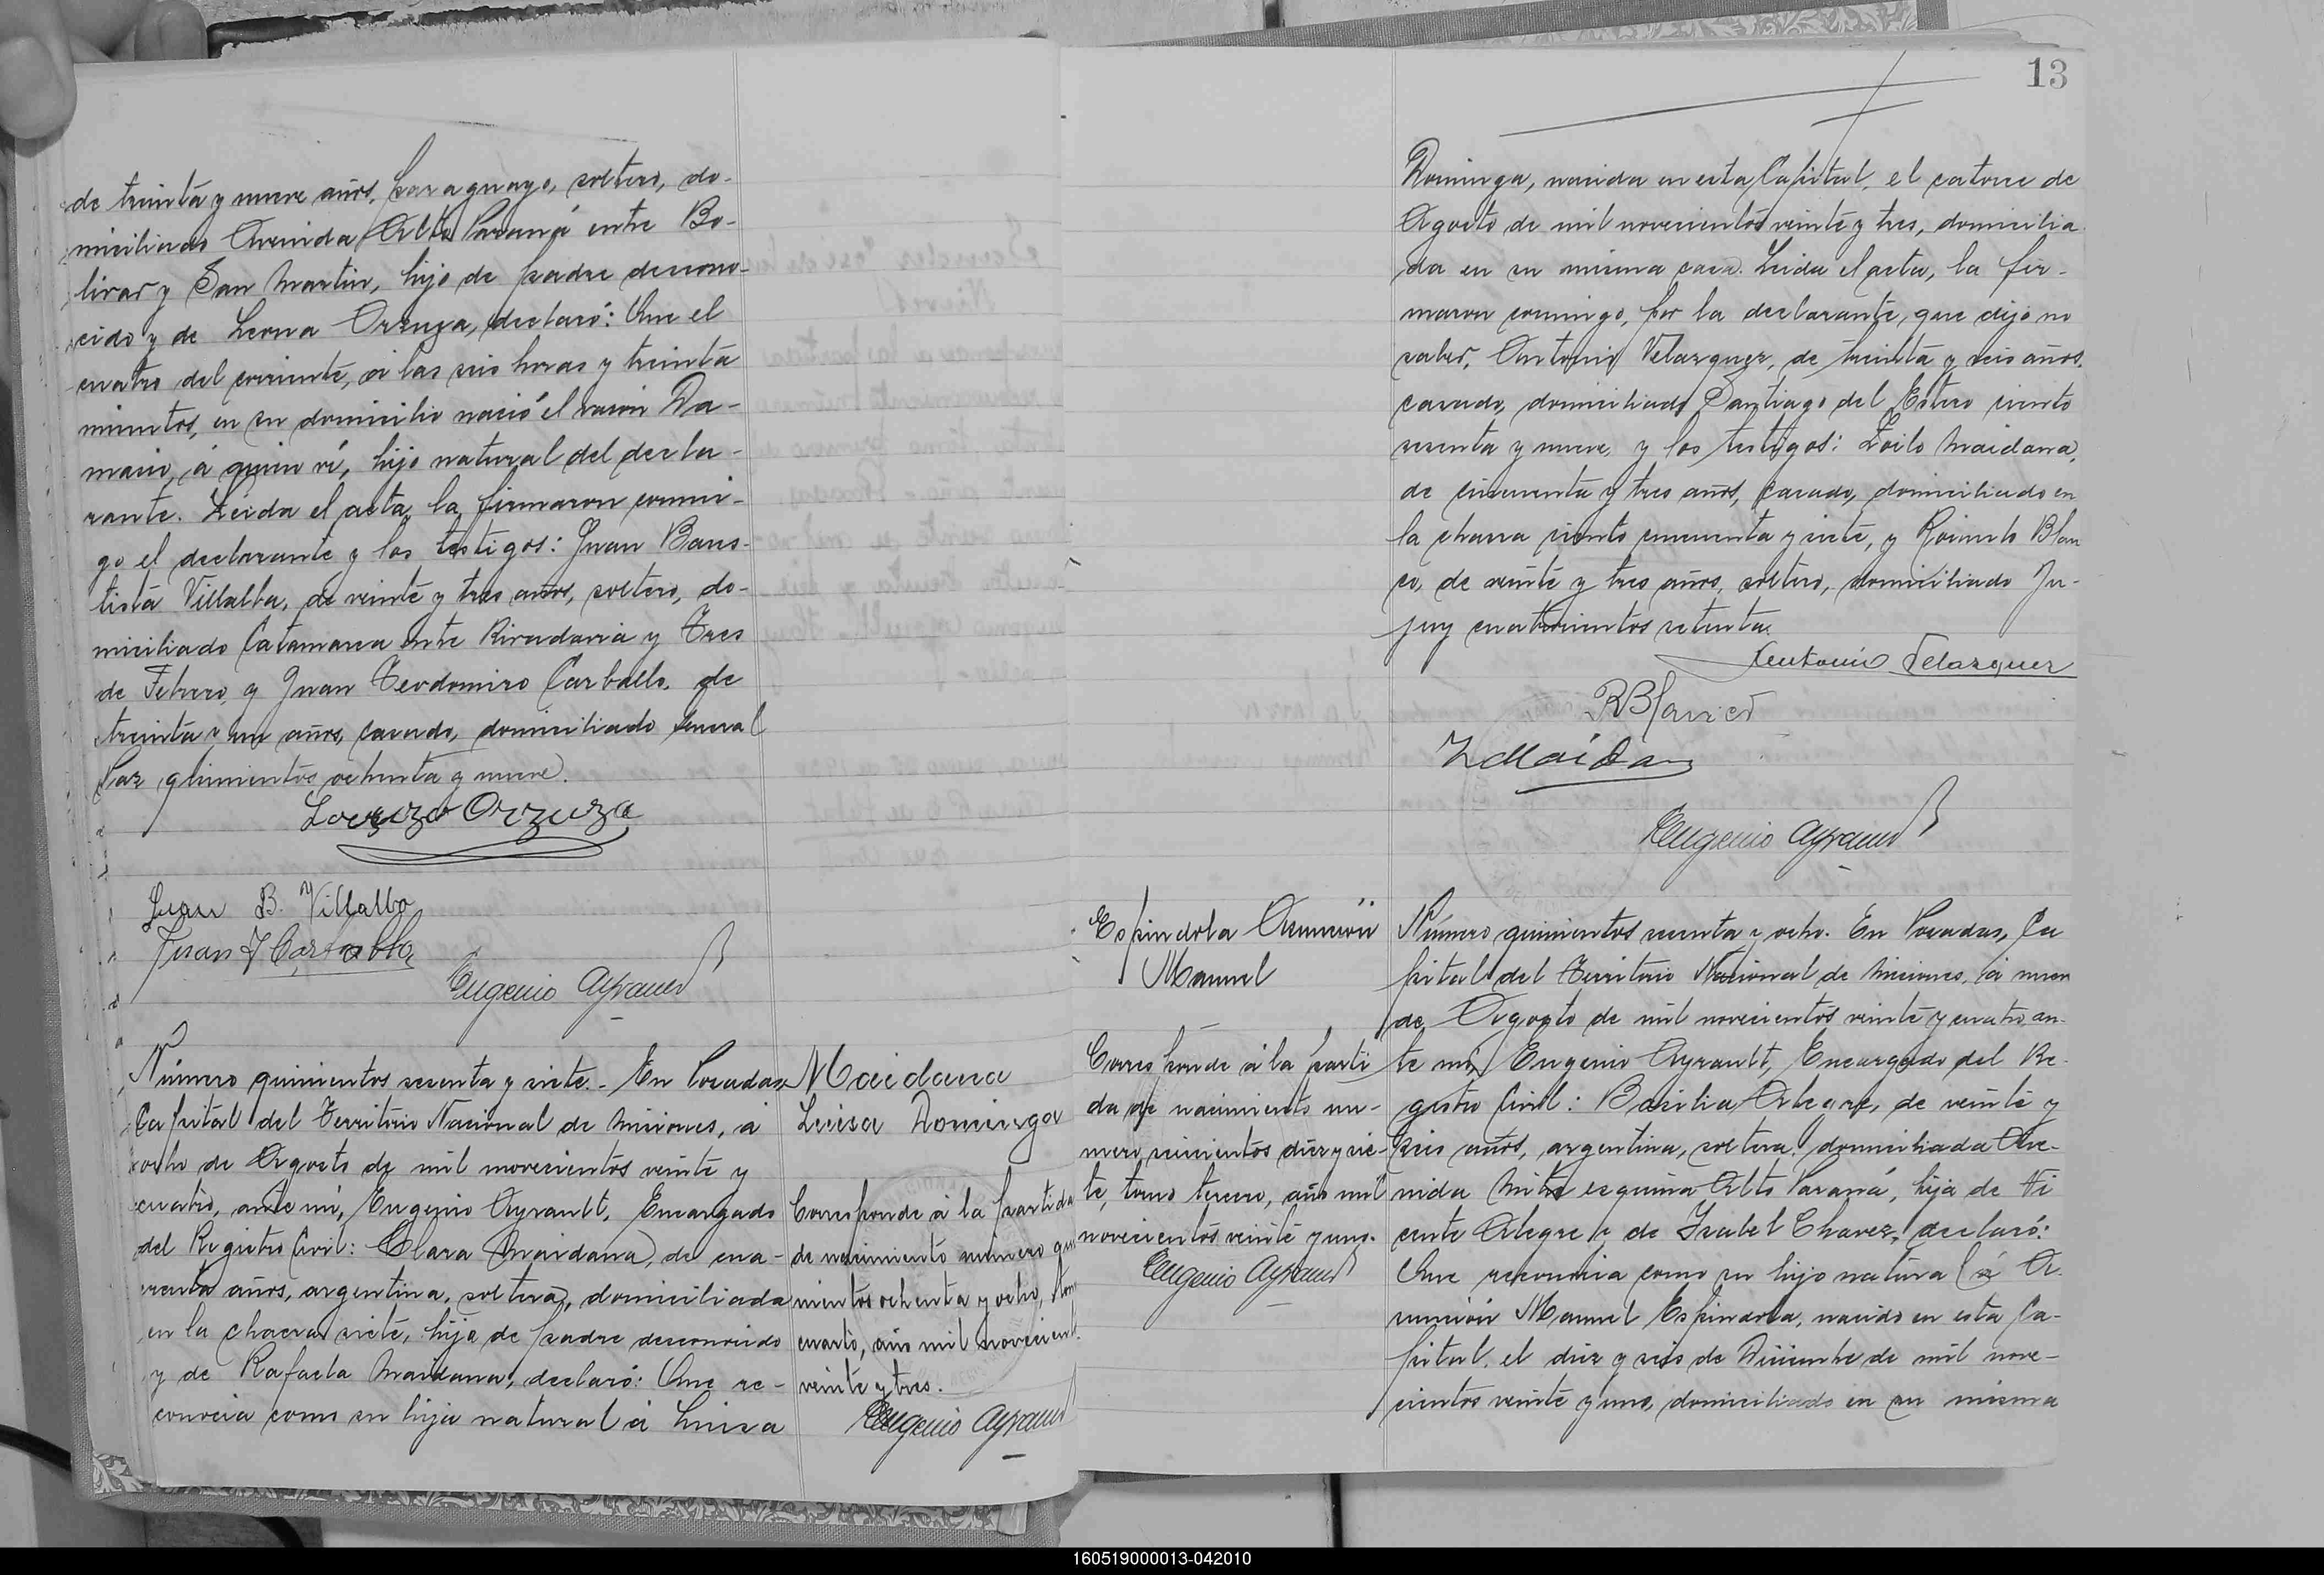 de treinta y nueve años, paraguayo, soltero, do-
miciliado Avenida Alto Paraná entre Bo-
livar y San Martin, hijo de padre descono-
cido y de Leona Orzuza, declaró: Que el
cuatro del corriente, á las seis horas y treinta
minutos, en su domicilio nació el varon Da-
macio, á quien ví, hijo natural del decla-
rante. Leida el acta, la firmaron conmi-
go el declarante y los testigos: Juan Baus-
tista Villalba, de veinte y tres años, soltero, do-
miciliado Catamarca entre Rivadavia y Tres
de Febrero, y Juan Teodomiro Carballo, de
treinta y un años, casado, domiciliado General
Paz quinientos ochenta y nueve.
Lorenzo Orzuza
Juan B. Villalba
Juan T Carballo
Eugenio Ayrault
Número quinientos sesenta y siete.- En Posadas
Capital del Territorio Nacional de Misiones, á
ocho de Agosto de mil novecientos veinte y
cuatro, ante mí, Eugenio Ayrault, Encargado
del Registro Civil: Clara Maidana, de cua-
renta años, argentina, soltera, domiciliada
en la chacra siete, hija de padre desconocido
y de Rafaela Maidana, declaró: Que re-
conocia como su hija natural á Luisa
Maidana
Luisa Dominga
Corresponde á la partida
de nacimiento número qui
nientos ochenta y ocho, tomo
cuarto, año mil novecient.
veinte y tres.
Eugenio Ayrault
13
Dominga, nacida en esta Capital, el catorce de
Agosto de mil novecientos veinte y tres, domicilia
da en su misma casa. Leida el acta, la fir-
maron conmigo, por la declarante, que dijo no
saber, Antonio Velazquez, de treinta y seis años,
casado, domiciliado Santiago del Estero ciento
sesenta y nueve, y los testigos: Zoilo Maidana,
de cincuenta y tres años, casado, domiciliado en
la chacra ciento cincuenta y siete, y Rosendo Blan
co, de veinte y tres años, soltero, domiciliado Ju-
juy cuatrocientos setenta.
Antonio Velazquez
R Blanco
Z Maidana
Eugenio Ayrault
Espindola Asunción
Manuel
Corresponde á la parti
da de nacimiento nú-
mero seiscientos diez y sie-
te, tomo tercero, año mil
novecientos veinte y uno.
Eugenio Ayrault
Número quinientos sesenta y ocho. En Posadas, Ca
pital del Territorio Nacional de Misiones, á nueve
de Agosto de mil novecientos veinte y cuatro, an-
te mí, Eugenio Ayrault, Encargado del Re-
gistro Civil: Basilia Alegre, de veinte y
seis años, argentina, soltera, domiciliada Ave-
nida Mitre esquina Alto Paraná, hija de Vi
cente Alegre y de Isabel Chavez, declaró:
Que reconocia como su hijo natural á A-
sunción Manuel Espindola, nacido en esta Ca-
pital, el diez y seis de Diciembre de mil nove-
cientos veinte y uno, domiciliado en su misma
160519000013-042010